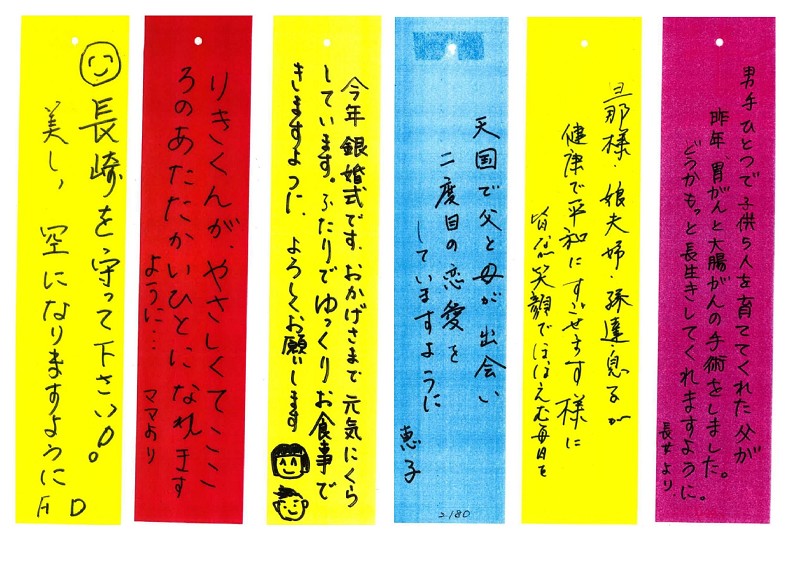 男手ひとつで子供5人を育ててくれた父が
昨年胃がんと大腸がんの手術をしました。
どうかもっと長生きしてくれますように。
長女より
旦那様・娘夫婦・孫達息子が
健康で平和にすごせます様に
皆が笑顔でほほえむ毎日を
天国で父と母が出会い
二度目の恋愛を
していますように
恵子
2180
今年銀婚式です。おかげさまで元気にくら
しています。ふたりでゆっくりお食事で
きますように、よろしくお願いします
りきくんが、やさしくてここ
ろのあたたかいひとになれます
ように…
ママより
長崎を守って下さい!。
美しい空になりますように
H D